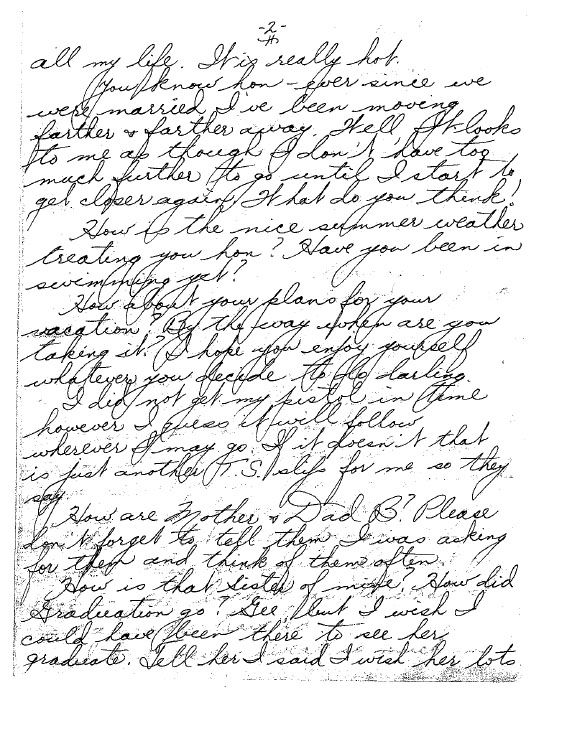 -2-
all my life. It is really hot.
You know hon - ever since we
were married I've been moving
farther & farther away. Well It looks
to me as though I don't have too
much further to go until I start to
get closer again. What do you think!
How is the nice summer weather
treating you hon? Have you been in
swimming yet?
How about your plans for your
vacation? By the way when are you
taking it? I hope you enjoy yourself
whatever you decide to do darling.
I did not get my pistol in time
however I guess it will follow
wherever I may go. If it doesn't that
is just another T.S. slip for me so they
say.
How are Mother & Dad B? Please
don't forget to tell them I was asking
for them and think of them often.
How is that sister of mine? How did
Graduation go? Gee, but I wish I
could have been there to see her
graduate. Tell her I said I wish her lots